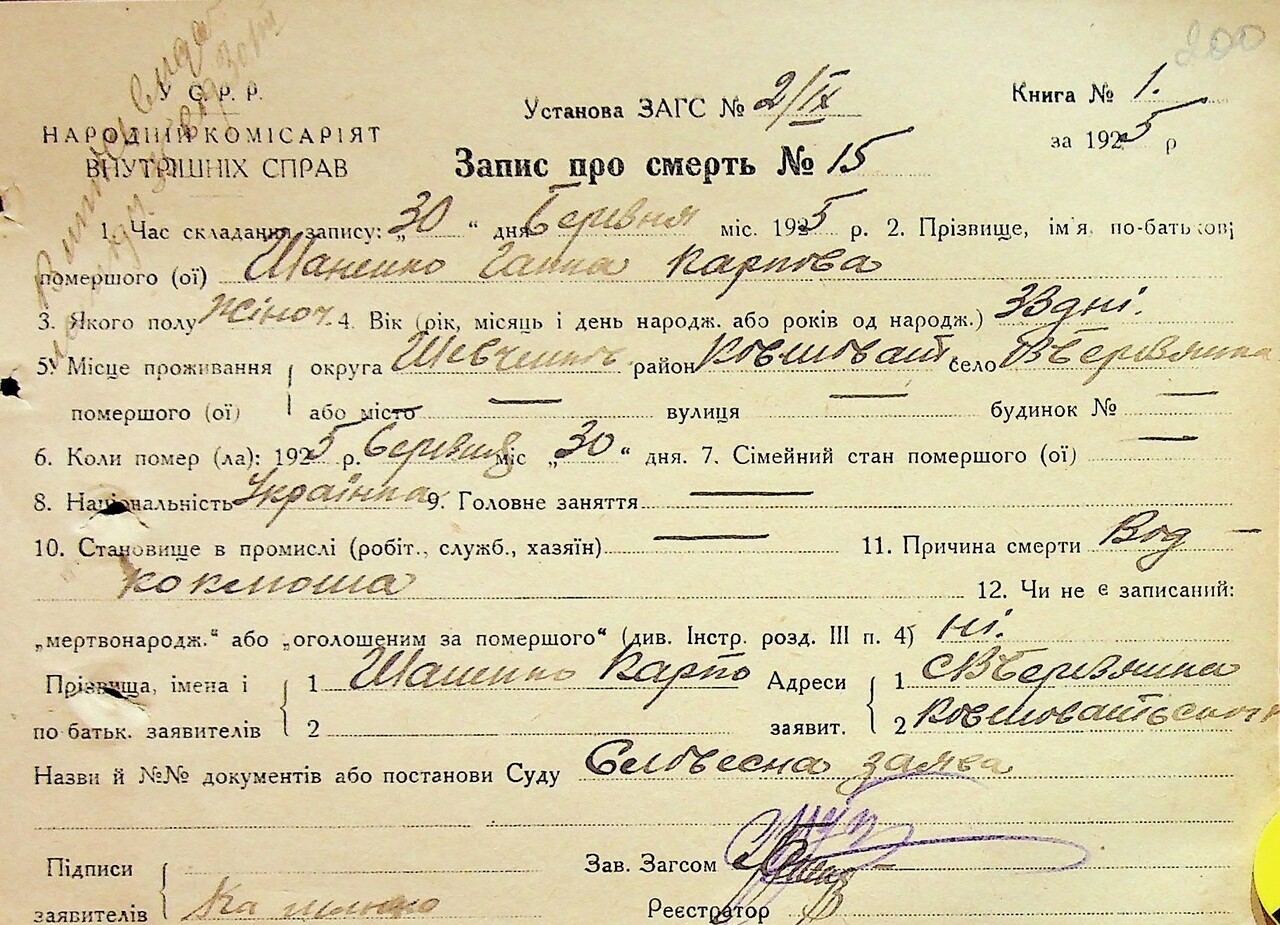 200
У С. Р. Р.
НАРОДНІЙ КОМІСАРІЯТ
ВНУТРІШНІХ СПРАВ
Установа ЗАГС № 2/IX
Книга № 1.
за 1925 р
Запис про смерть № 15
1. Час складання запису: „30“ дня Березня міс. 1925 р. 2. Прізвище, ім'я, по-батькові
помершого (ої) Шаненко Ганна Карпова
3. Якого полу Жіноч. 4. Вік (рік, місяць і день народж. або років од народж.) 33 дні.
5. Місце проживання округа Шевченк. район Ковшоват. село В Березянка
помершого (ої) або місто — вулиця — будинок № —
6. Коли помер (ла): 1925 р. Березня міс „30“ дня. 7. Сімейний стан помершого (ої) —
8. Національність Українка 9. Головне заняття —
10. Становище в промислі (робіт., служб., хазяїн) — 11. Причина смерти Вод —
коклюша 12. Чи не є записаний:
„мертвонародж.“ або „оголошеним за помершого“ (див. Інстр. розд. III п. 4) ні.
Прізвища, імена і 1 Шаненко Карпо Адреси 1 с В Березянка
по батьк. заявителів 2 заявит. 2 Ковшоватського
Назви й №№ документів або постанови Суду Словесна заява
Підписи Зав. Загсом
заявителів Реєстратор